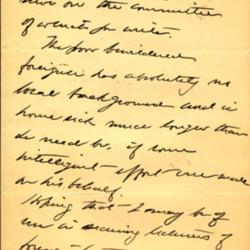 on the committee
of which you write.
The poor bewildered
foreigner has absolutely no
local background and is
home sick much longer than
he need be, if some
intelligent effort was made
on his behalf.
Hoping that I may be of
use in securing